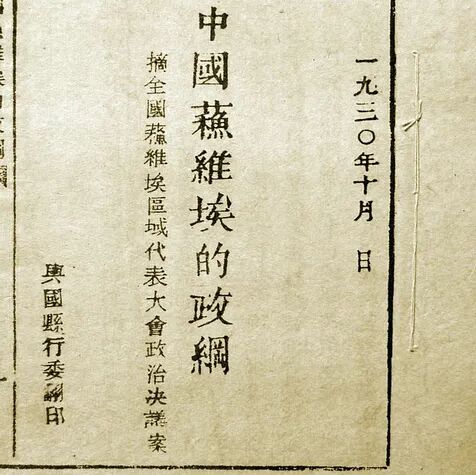 一九三〇年十月 日
中國蘓維埃的政綱
摘全國蘓維埃區域代表大會政治决議案
興國縣行委翻印